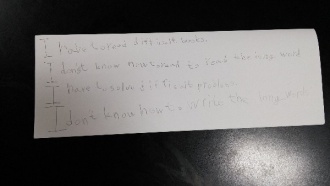 I have to read difficult books
I don't know how to read the long word
I have to solve difficult problem
I don't know how to write the long word